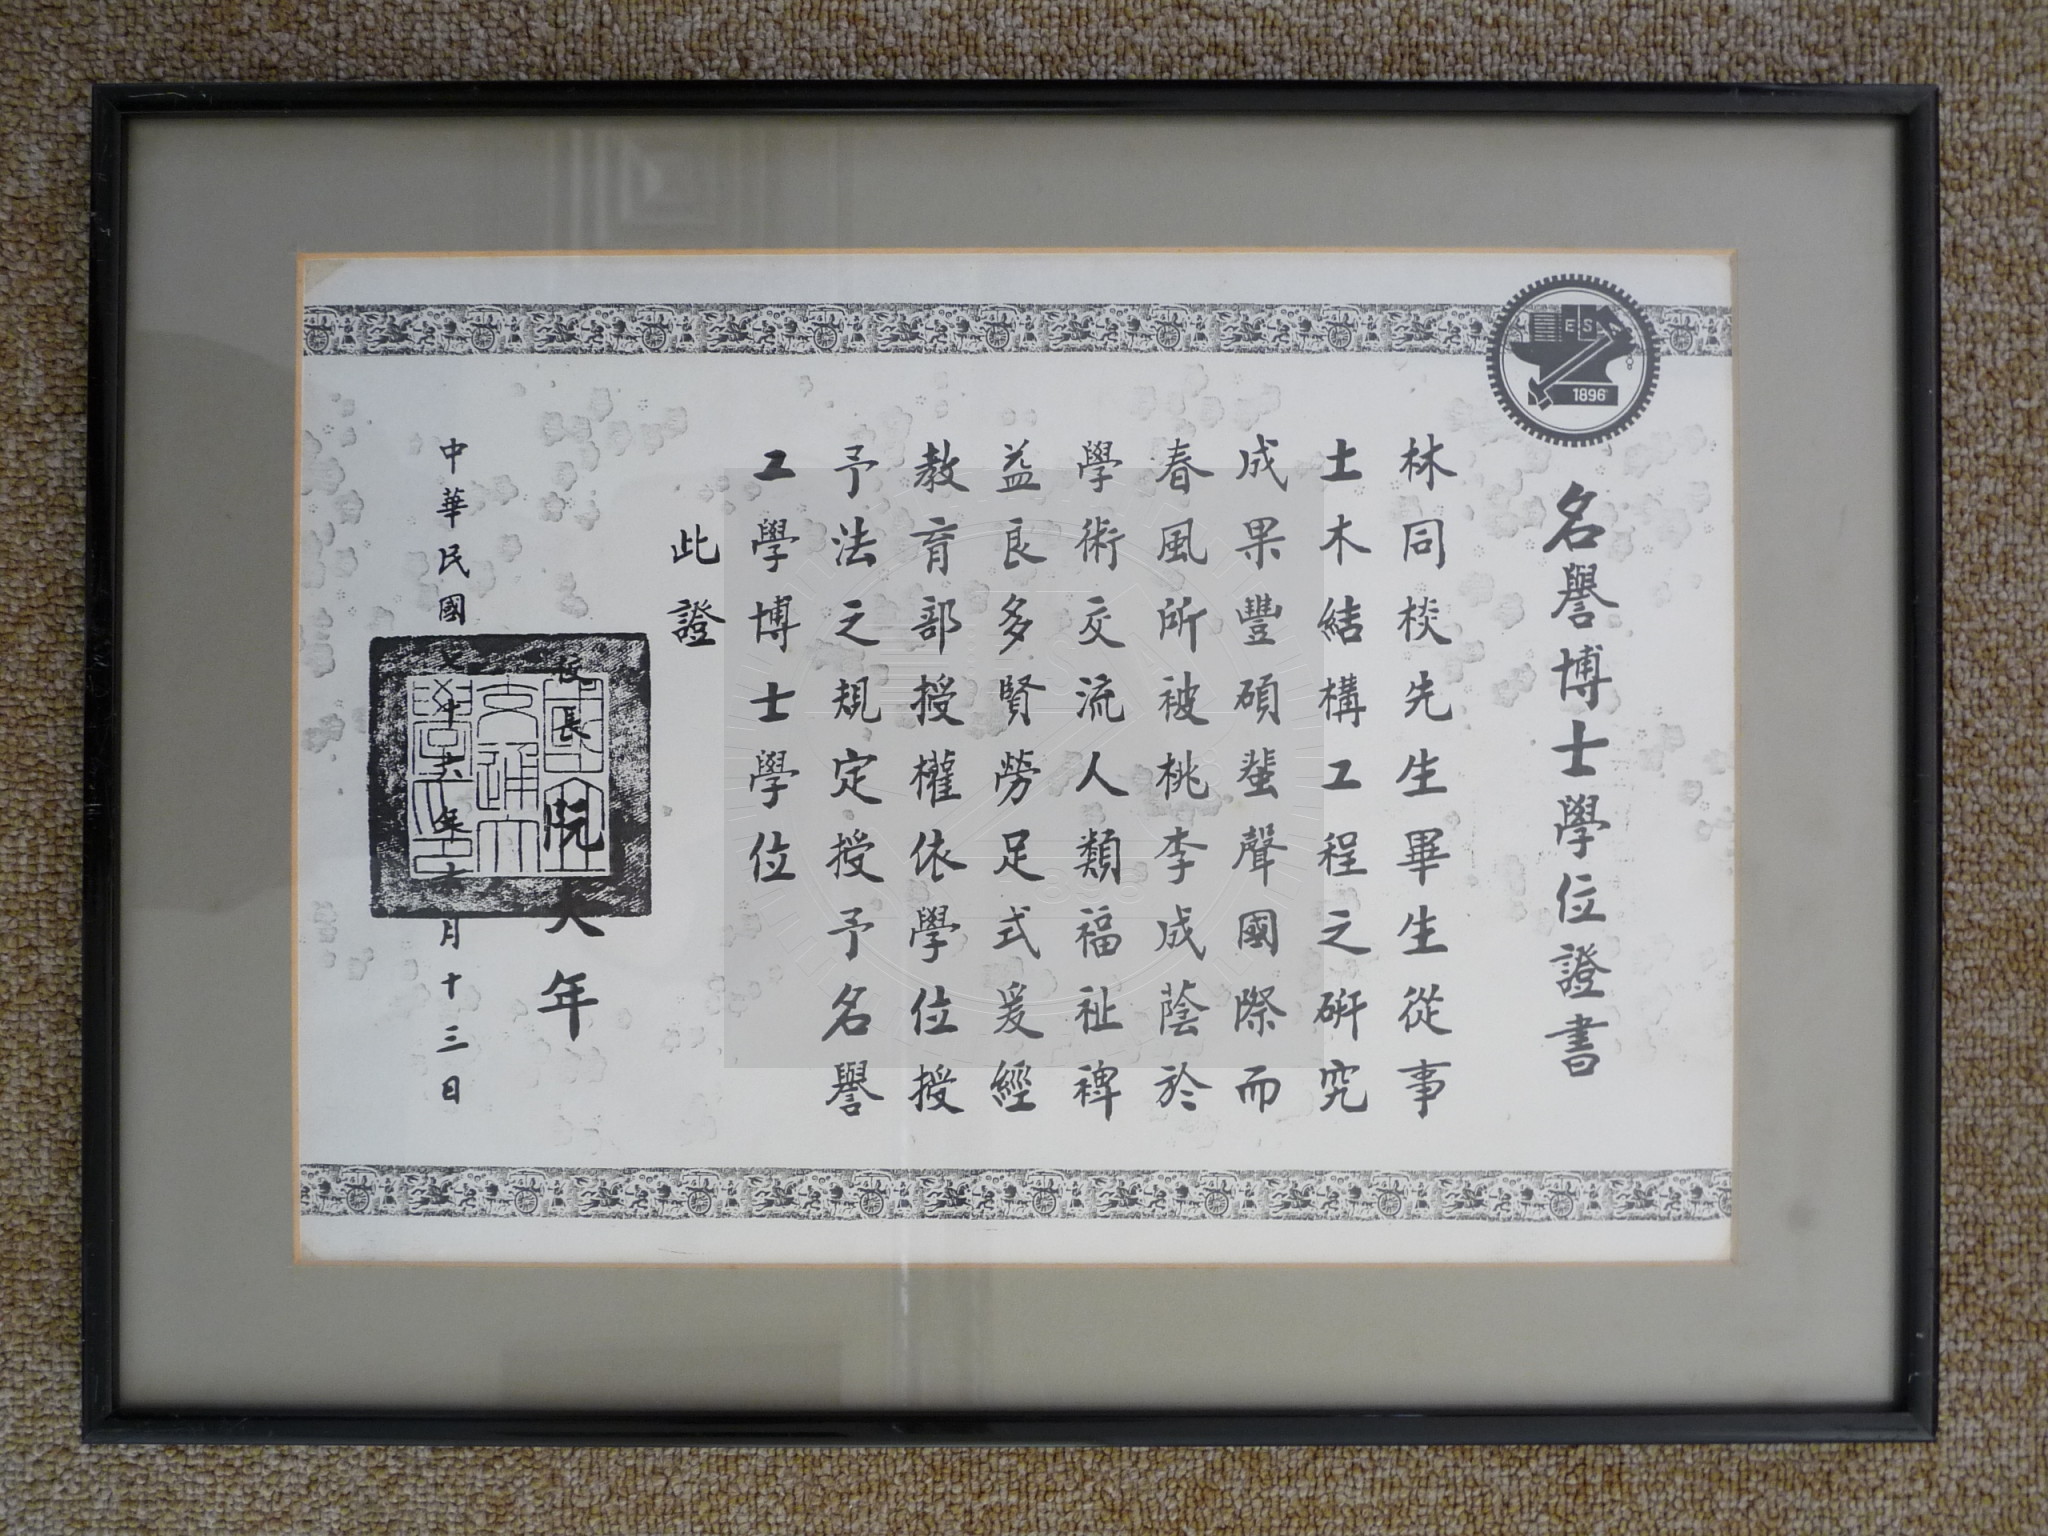 名譽博士學位證書
林同棪先生畢生從事
土木結構工程之研究
成果豐碩蜚聲國際而
春風所被桃李成蔭於
學術交流人類福祉裨
益良多賢勞足式爰經
教育部授權依學位授
予法之規定授予名譽
工學博士學位
此證
校長阮大年
中華民國七十六年十月十三日
國立交通大學
1896